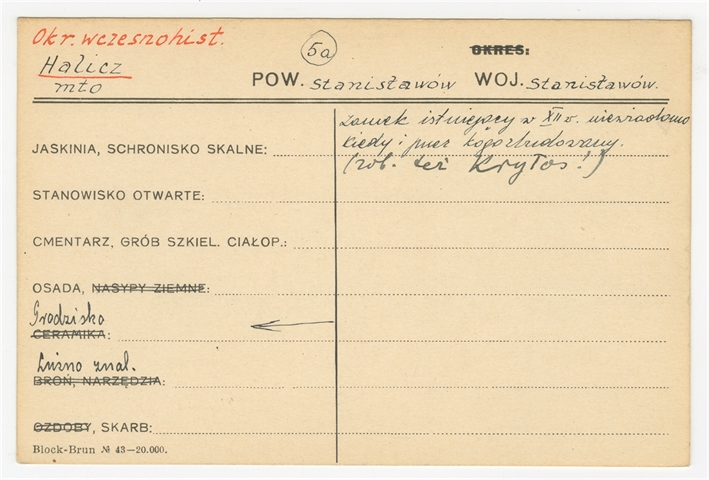 Okr. wczesnohist.
5a
OKRES:
Halicz
mto
POW. Stanisławów WOJ. Stanisławów.
zamek istniejący w XII w. niewiadomo
kiedy i przez kogo zbudowany.
(zob. też Kryłos!)
JASKINIA, SCHRONISKO SKALNE:
STANOWISKO OTWARTE:
CMENTARZ, GRÓB SZKIEL. CIAŁOP.:
OSADA, NASYPY ZIEMNE:
Grodzisko
CERAMIKA:
Luźno znal.
BROŃ, NARZĘDZIA:
OZDOBY, SKARB:
Block-Brun № 43—20.000.